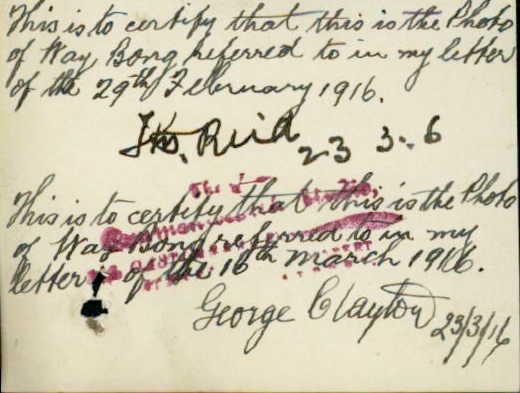 This is to certify that this is the Photo
of Way Bong referred to in my letter
of the 29th February 1916.
Reid
23 3. 6
This is to certify that this is the Photo
of Way Bong referred to in my
letter of the 16th March 1916.
George Clayton 23/3/16